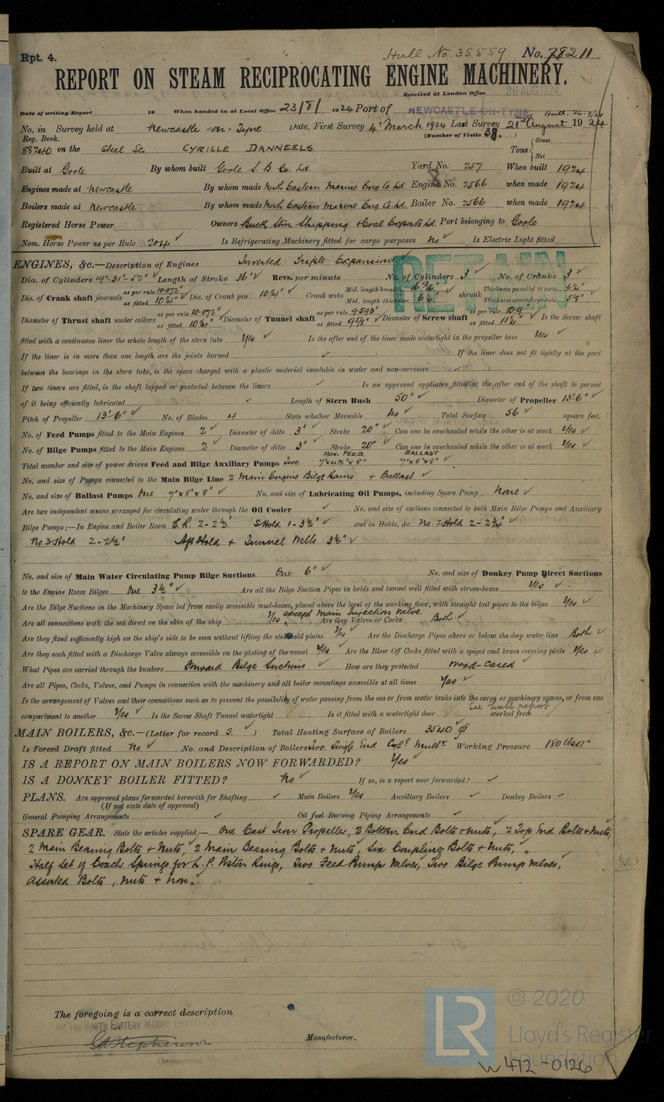 Rpt. 4. Hull No. 35559 No. 78211
REPORT ON STEAM RECIPROCATING ENGINE MACHINERY.
Received at London Office 26 AUG 1924
Date of writing Report 19 When handed in at Local Office 23/8/1924 Port of NEWCASTLE-ON-TYNE
No. in Survey held at Newcastle-on-Tyne Date, First Survey 4th March 1924 Last Survey 21st August 1924
Reg. Book. (Number of Visits 38.)
88740 on the Steel Sc. CYRILLE DANNEELS Tons Gross Net
Built at Goole By whom built Goole S. B. Co. Ld. Yard No. 257 When built 1924
Engines made at Newcastle By whom made North Eastern Marine Eng Co Ld. Engine No. 2566 when made 1924
Boilers made at Newcastle By whom made North Eastern Marine Eng Co Ld. Boiler No. 2566 when made 1924
Registered Horse Power Owners Buck Stin Shipping & Coal Exports Ld Port belonging to Goole
Nom. Horse Power as per Rule 204 Is Refrigerating Machinery fitted for cargo purposes No Is Electric Light fitted
RETAIN
ENGINES, &c.—Description of Engines Inverted Triple Expansion
Dia. of Cylinders 19"-31"-52" Length of Stroke 36" Revs. per minute No. of Cylinders 3 No. of Cranks 3
Dia. of Crank shaft journals as per rule 10.072" as fitted 10 3/4" Dia. of Crank pin 10 3/4" Crank webs Mid. length breadth Mid. length thickness 6 1/2" shrunk Thickness parallel to axis 6 1/2" Thickness around eye-hole
Diameter of Thrust shaft under collars as per rule 10.072" as fitted 10 3/4" Diameter of Tunnel shaft as per rule 9.593" as fitted 9 3/4" Diameter of Screw shaft as per rule 10.9" as fitted 11 1/4" Is the Screw shaft
fitted with a continuous liner the whole length of the stern tube Yes Is the after end of the liner made watertight in the propeller boss Yes
If the liner is in more than one length are the joints burned If the liner does not fit tightly at the part
between the bearings in the stern tube, is the space charged with a plastic material insoluble in water and non-corrosive
If two liners are fitted, is the shaft lapped or protected between the liners Is an approved appliance fitted at the after end of the shaft to permit
of it being efficiently lubricated Length of Stern Bush 50" Diameter of Propeller 13'.6"
Pitch of Propeller 13'.6" No. of Blades 4 State whether Moveable No Total Surface 56 square feet.
No. of Feed Pumps fitted to the Main Engines 2 Diameter of ditto 3" Stroke 20" Can one be overhauled while the other is at work Yes
No. of Bilge Pumps fitted to the Main Engines 2 Diameter of ditto 3" Stroke 20" Can one be overhauled while the other is at work Yes
AUX. FEED BALLAST
Total number and size of power driven Feed and Bilge Auxiliary Pumps Two
No. and size of Pumps connected to the Main Bilge Line 2 Main Engine Bilge Rams + Ballast
No. and size of Ballast Pumps One 7"x8"x8" No. and size of Lubricating Oil Pumps, including Spare Pump None
Are two independent means arranged for circulating water through the Oil Cooler No. and size of suctions connected to both Main Bilge Pumps and Auxiliary
Bilge Pumps;—In Engine and Boiler Room E.R. 2-2 1/2" S Hold 1-3 1/2" and in Holds, &c. No. 2 Hold 2-2 1/4"
No 3 Hold 2-2 1/2" Aft Hold + Tunnel Wells 3 1/2"
No. and size of Main Water Circulating Pump Bilge Suctions One 6" No. and size of Donkey Pump Direct Suctions
to the Engine Room Bilges One 3 1/2" Are all the Bilge Suction Pipes in holds and tunnel well fitted with strum-boxes Yes
Are the Bilge Suctions in the Machinery Space led from easily accessible mud-boxes, placed above the level of the working floor, with straight tail pipes to the bilges Yes
Are all connections with the sea direct on the skin of the ship Yes except Main Injection Valve Are they Valves or Cocks Both
Are they fixed sufficiently high on the ship's side to be seen without lifting the stokehold plates Yes Are the Discharge Pipes above or below the deep water line Both
Are they each fitted with a Discharge Valve always accessible on the plating of the vessel Yes Are the Blow Off Cocks fitted with a spigot and brass covering plate Yes
What Pipes are carried through the bunkers Forward Bilge Suctions How are they protected Wood-cased
Are all Pipes, Cocks, Valves, and Pumps in connection with the machinery and all boiler mountings accessible at all times Yes
Is the arrangement of Valves and their connections such as to prevent the possibility of water passing from the sea or from water tanks into the cargo or machinery spaces, or from one
compartment to another Yes Is the Screw Shaft Tunnel watertight Is it fitted with a watertight door See hull report worked from
MAIN BOILERS, &c.—(Letter for record S) Total Heating Surface of Boilers 3540 sq ft
Is Forced Draft fitted No No. and Description of Boilers Two Single End Cyl. Mult. Working Pressure 180 lbs
IS A REPORT ON MAIN BOILERS NOW FORWARDED? Yes
IS A DONKEY BOILER FITTED? No If so, is a report now forwarded?
PLANS. Are approved plans forwarded herewith for Shafting Main Boilers Yes Auxiliary Boilers Donkey Boilers
(If not state date of approval)
General Pumping Arrangements Oil fuel Burning Piping Arrangements
SPARE GEAR. State the articles supplied:— One Cast Iron Propeller, 2 Bottom End Bolts & Nuts, 2 Top End Bolts & Nuts,
2 Main Bearing Bolts + Nuts, 2 Main Bearing Bolts + Nuts, Six Coupling Bolts + Nuts,
Half Set of Coach Springs for L.P. Piston Rings, Two Feed Pump Valves, Two Bilge Pump Valves,
Assorted Bolts, Nuts + Iron.
The foregoing is a correct description
FOR THE NORTH EASTERN MARINE
Manufacturer.
LR © 2020
Lloyd's Register
Foundation
W412-0126